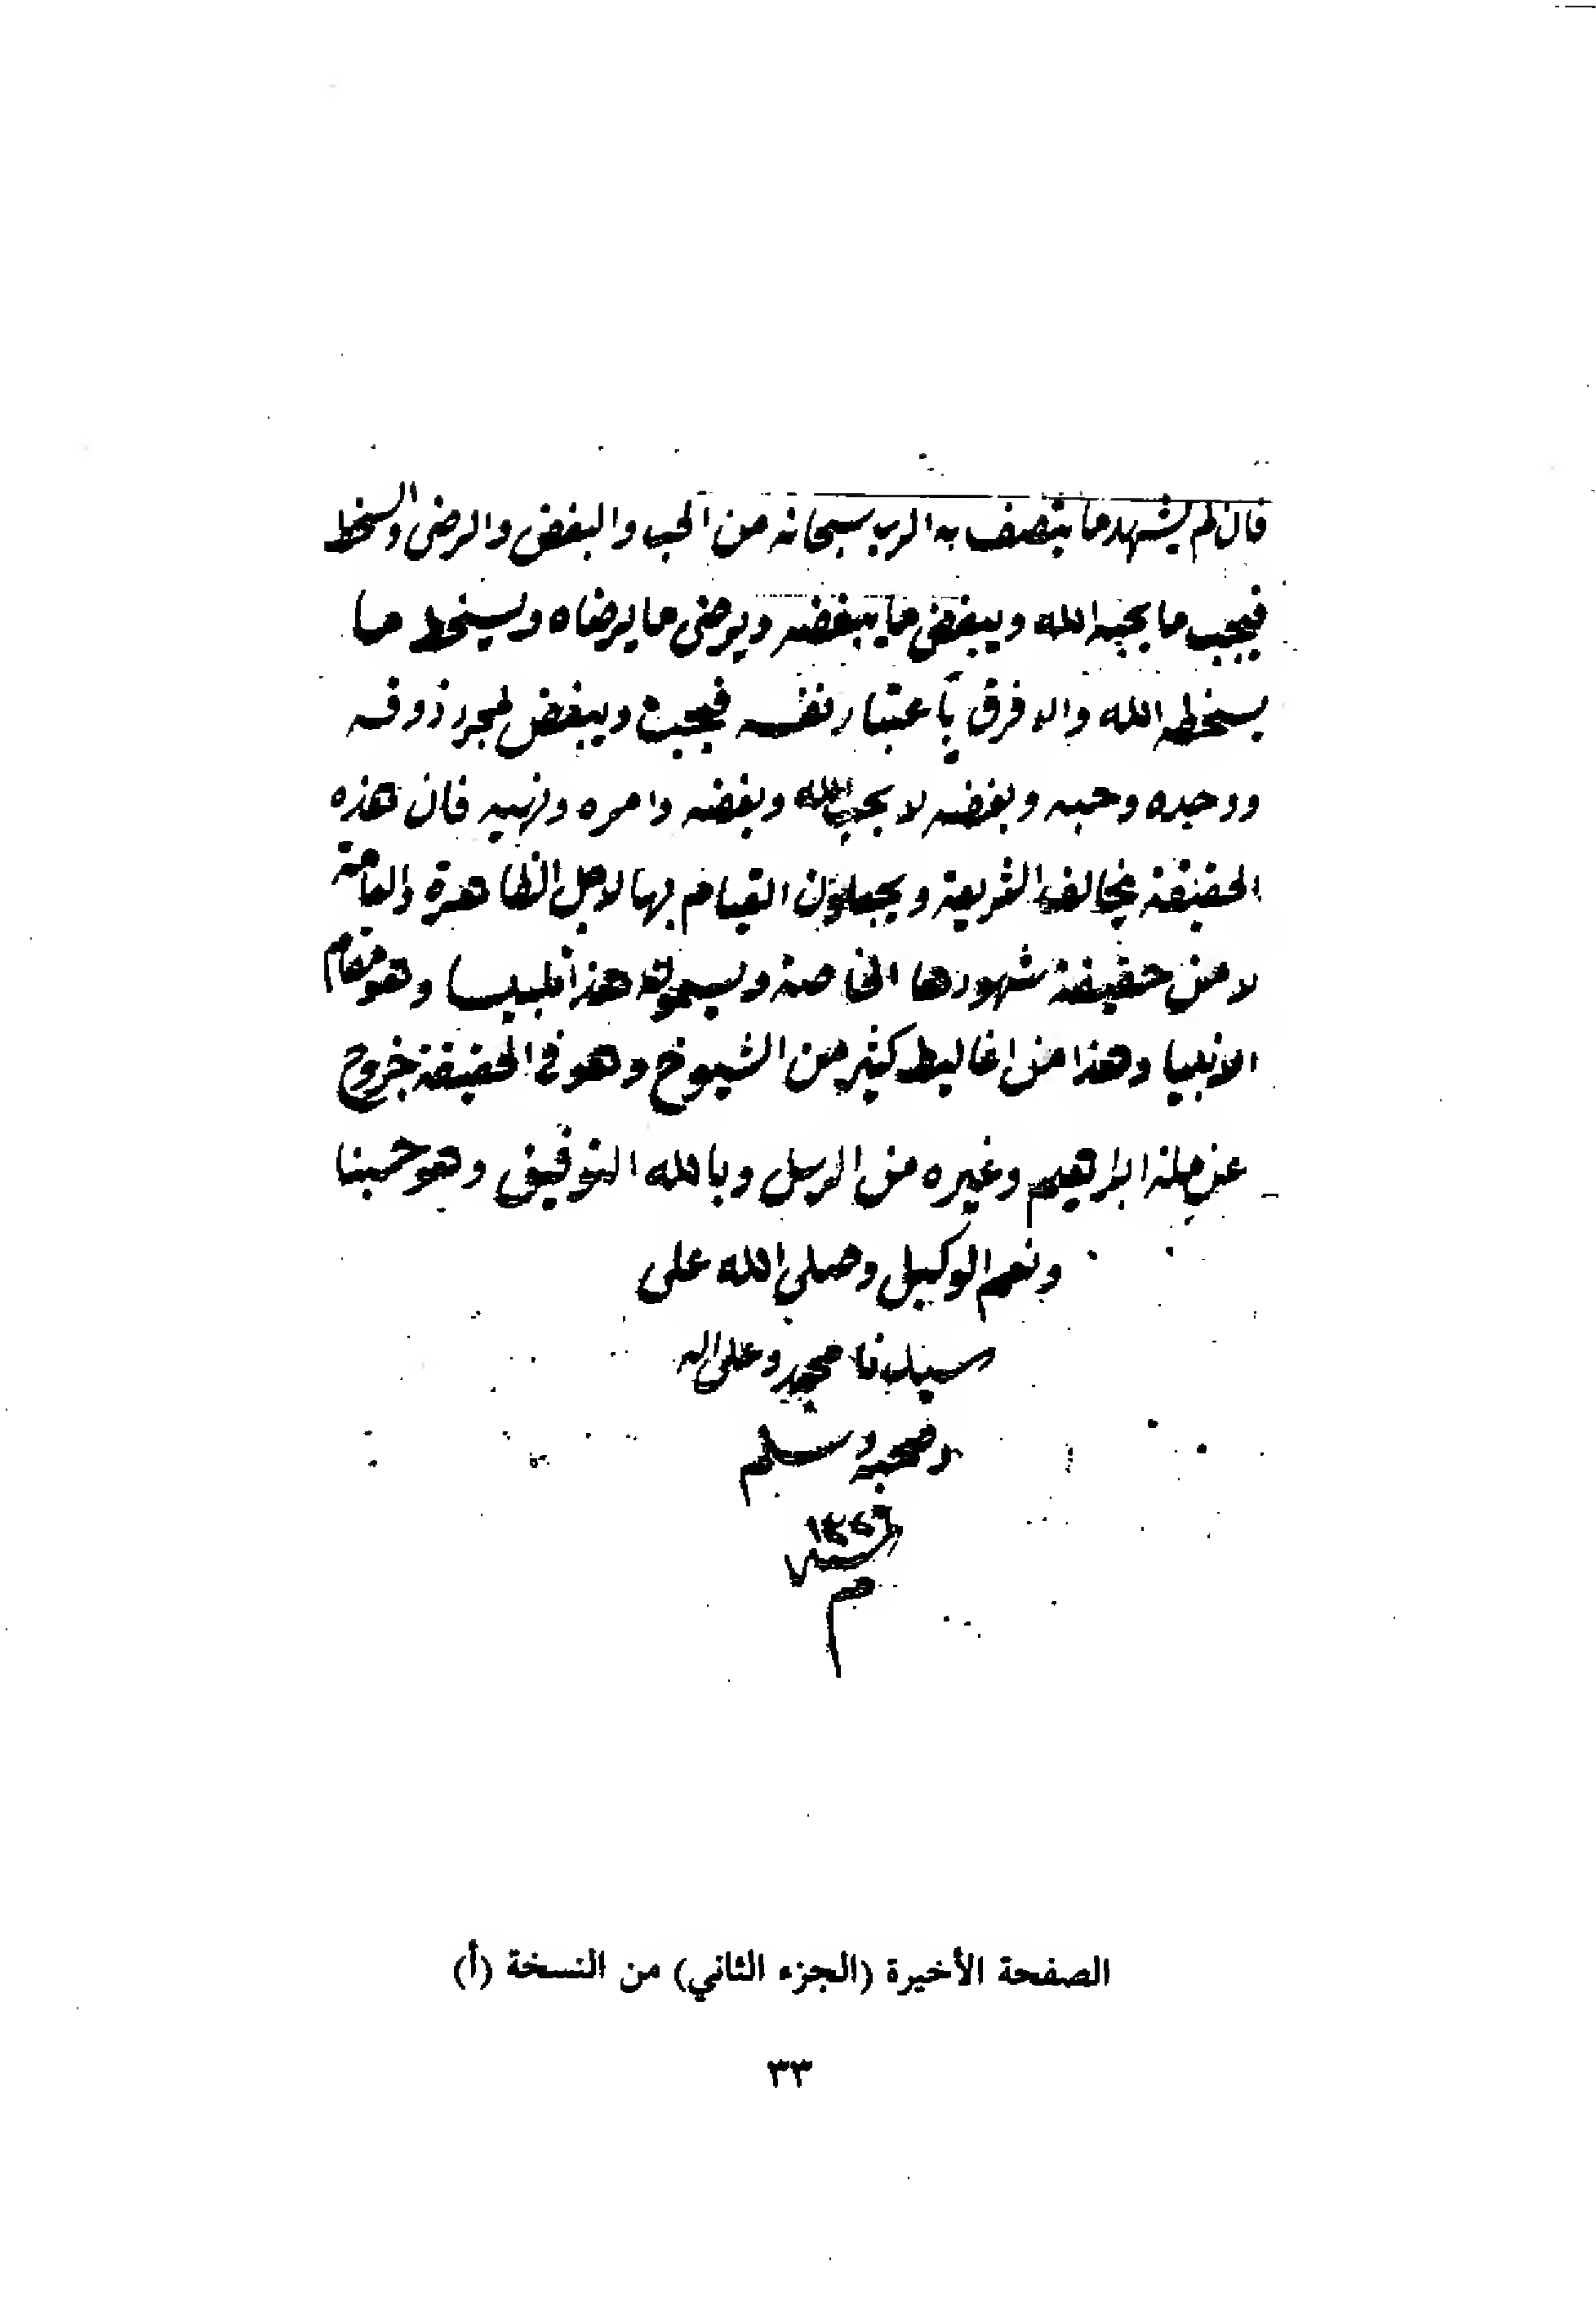 فان لم يشهد ما يتصف به الرب سبحانه من الحب والبغض والرضى والسخط
فيحب ما يحبه الله ويبغض ما يبغضه ويرضى ما يرضاه ويسخط ما
يسخطه الله والا فرق باعتبار نفسه فيحب ويبغض لمجرد ذوقه
ووجده وحبه وبغضه لا بحب الله وبغضه وامره ونهيه فان هذه
الحقيقة يخالف الشريعة ويجعلون القيام بها لاجل الظاهرة والعامة
لا من حقيقة شهودها الخاصة ويسمونه هذا تلبيسا وهو مقام
الانبيا وهذا من اغاليط كثير من الشيوخ وهو في الحقيقة خروج
عن ملة ابراهيم وغيره من الرسل وبالله التوفيق وهو حسبنا
ونعم الوكيل وصلى الله على
سيدنا محمد وعلى اله
وصحبه وسلم
م
الصفحة الأخيرة (الجزء الثاني) من النسخة (أ)
٣٣